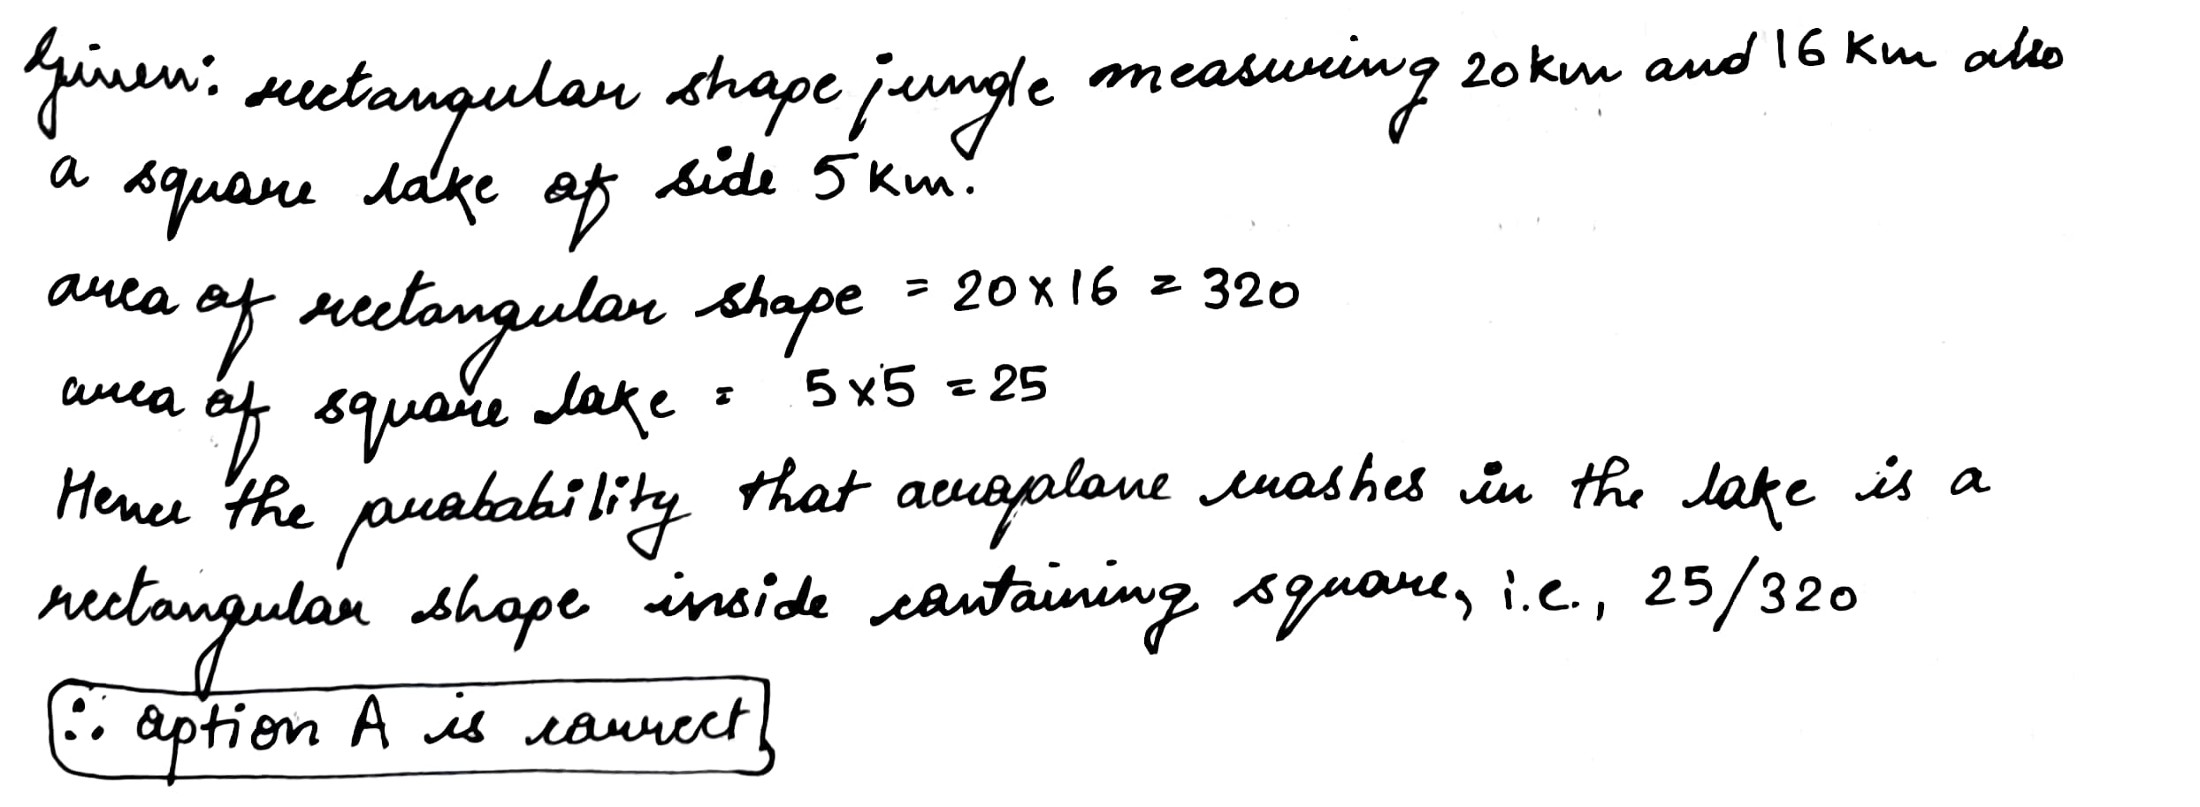 Given: rectangular shape jungle measuring 20km and 16 Km also
a square lake of side 5 Km.
area of rectangular shape = 20 × 16 = 320
area of square lake = 5 × 5 = 25
Hence the probability that aeroplane crashes in the lake is a
rectangular shape inside containing square, i.e., 25/320
∴ option A is correct